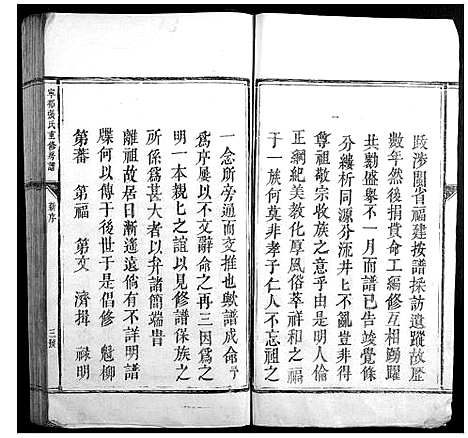 跋涉閩省福建按譜採訪遺蹤故歷
數年然後捐貲命工編修互相踴躍
共勷盛舉不一月而譜已告竣覺條
分縷析同源分流井上不亂豈非得
尊祖敬宗收族之意乎由是明人倫
正綱紀美教化厚風俗萃祥和之福
于一族何莫非孝子仁人不忘祖之
一念所旁通而交推也歟譜成命予
為序屢以不文辭命之再三因為之
明一本親上之誼以見修譜保族之
所係為甚大者以弁諸簡端昔
離祖故居日漸遙遠倘有不詳明譜
牒何以傳于後世于是合修 魁柳
第蕃 第福 第文 濟揖 祿明
寧都張氏重修房譜
新序
三號